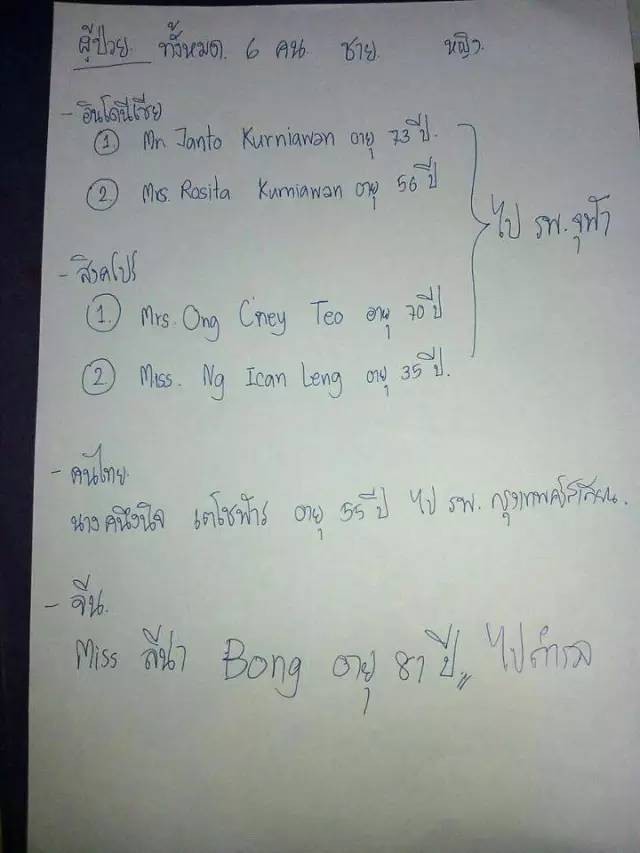 ผู้ป่วย ทั้งหมด 6 คน ชาย หญิง
- อินโดนีเซีย
① Mr. Janto Kurniawan อายุ 73 ปี.
② Mrs. Rosita Kurniawan อายุ 56 ปี
ไป รพ.จุฬา
- สิงคโปร์
① Mrs. Ong Ciney Teo อายุ 70 ปี
② Miss. Ng Ican Leng อายุ 35 ปี.
- คนไทย.
นาง คนึงนิจ อายุ 55 ปี ไป รพ. กรุงเทพคริสเตียน.
- จีน.
Miss ลีน่า Bong อายุ 81 ปี ไปตำรวจ